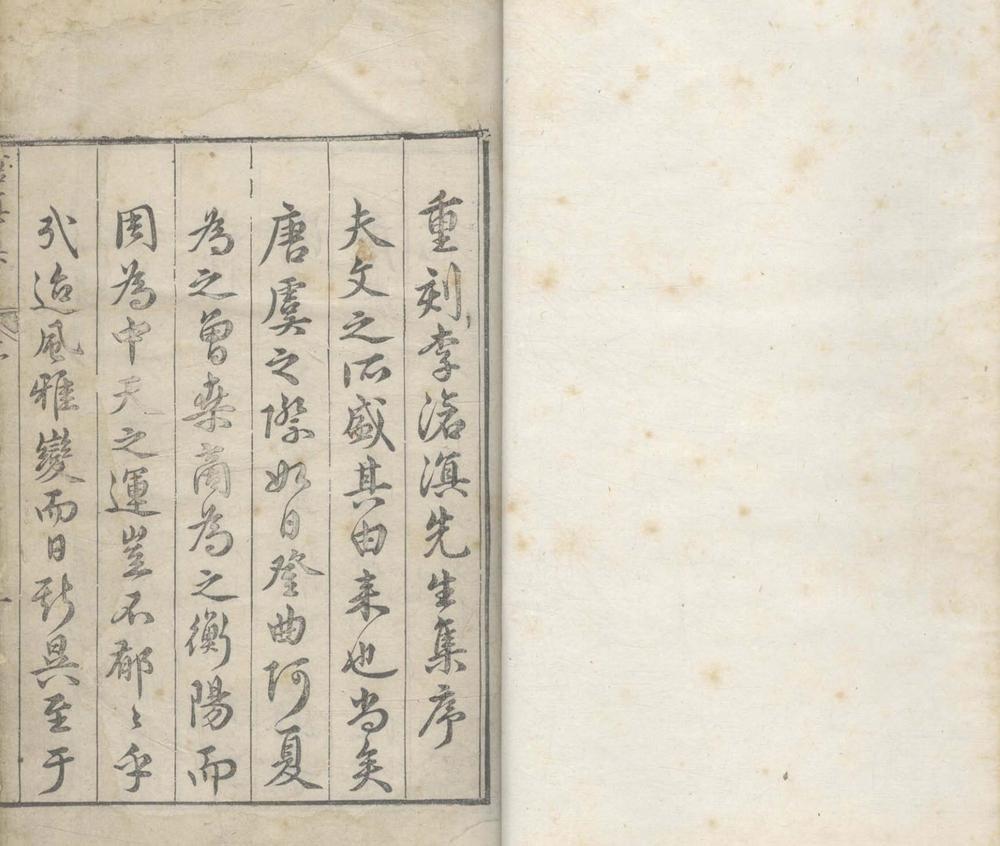 重刻李滄溟先生集序
夫文之所盛其由来也尚矣
唐虞之際如日登曲阿夏
為之曾桑商為之衡陽而
周為中天之運豈不郁〻乎
弐迨風雅變而日新異至于